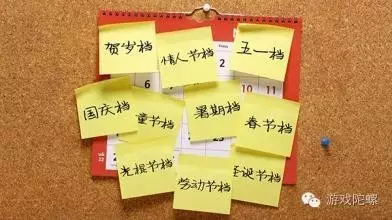 贺岁档
情人节档
五一档
2
6
10
11
国庆档
童节档
暑期档
春节档
光棍节档
劳动节档
圣诞节档
游戏陀螺